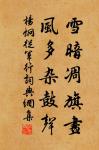 雪暗凋旗畫
風多雜鼓聲
楊炯從軍行詞典網集